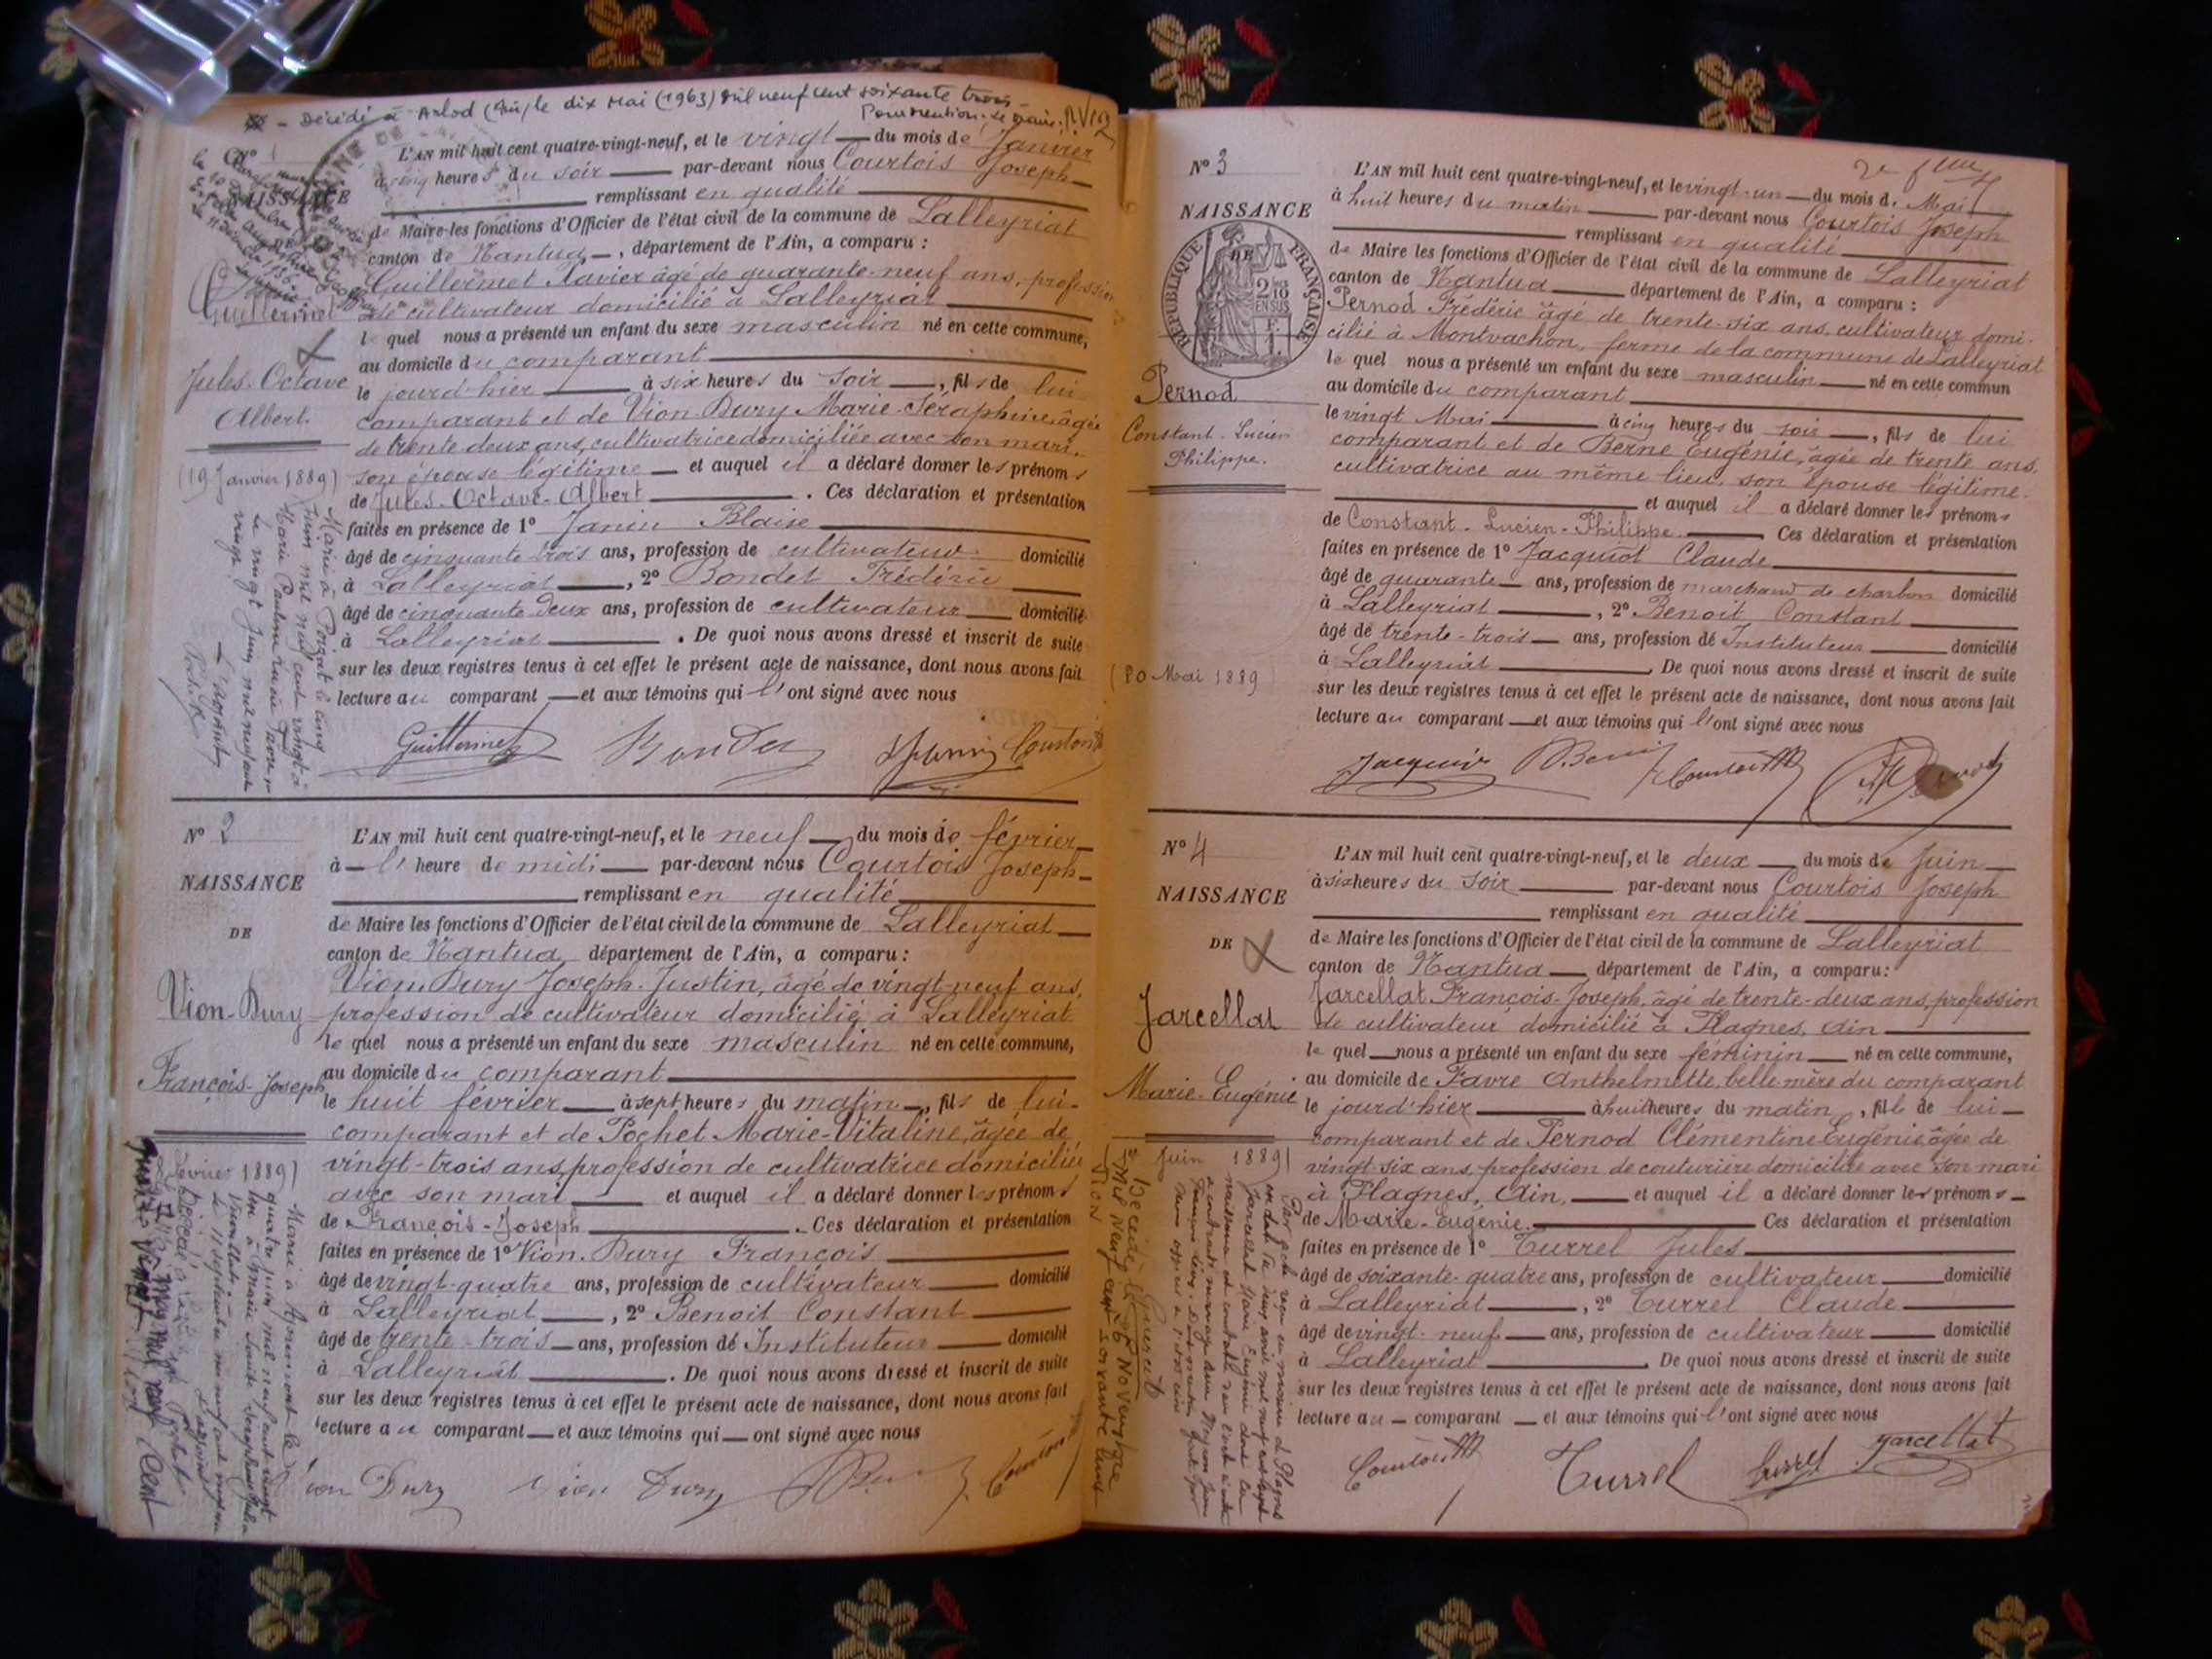 - Décédé à Arlod (Ain) le dix Mai (1963) mil neuf cent soixante trois -
Pour mention. Le Maire:
N° 1
NAISSANCE
Guillermet
Jules-Octave
Albert.
(19 Janvier 1889)
L'AN mil huit cent quatre-vingt-neuf, et le vingt du mois de Janvier
à cinq heures du soir par-devant nous Courtois Joseph
remplissant en qualité
de Maire les fonctions d'Officier de l'état civil de la commune de Lalleyriat
canton de Nantua, département de l'Ain, a comparu :
Guillermet Xavier âgé de quarante-neuf ans, profession
de cultivateur domicilié à Lalleyriat
lequel nous a présenté un enfant du sexe masculin né en cette commune,
au domicile du comparant
le jourd'hier à six heures du soir, fils de lui
comparant et de Vion-Dury Marie-Séraphine, âgée
de trente deux ans, cultivatrice domiciliée avec son mari,
son épouse légitime et auquel il a déclaré donner les prénoms
de Jules-Octave-Albert. Ces déclaration et présentation
faites en présence de 1° Janin Blaise
âgé de cinquante trois ans, profession de cultivateur domicilié
à Lalleyriat, 2° Bondet Frédéric
âgé de cinquante deux ans, profession de cultivateur domicilié
à Lalleyriat. De quoi nous avons dressé et inscrit de suite
sur les deux registres tenus à cet effet le présent acte de naissance, dont nous avons fait
lecture au comparant et aux témoins qui l'ont signé avec nous
Marié à Poizat le cinq
Juin mil neuf cent vingt à
Le vingt Juin mil neuf cent
vingt
Guillermet Bondet Janin Courtois
N° 2
NAISSANCE
DE
Vion-Dury
François-Joseph
février 1889)
L'AN mil huit cent quatre-vingt-neuf, et le neuf du mois de février
à l'heure de midi par-devant nous Courtois Joseph
remplissant en qualité
de Maire les fonctions d'Officier de l'état civil de la commune de Lalleyriat
canton de Nantua département de l'Ain, a comparu :
Vion-Dury Joseph-Justin, âgé de vingt-neuf ans,
profession de cultivateur domicilié à Lalleyriat
lequel nous a présenté un enfant du sexe masculin né en cette commune,
au domicile du comparant
le huit février à sept heures du matin, fils de lui-
comparant et de Pochet Marie-Vitaline, âgée de
vingt-trois ans, profession de cultivatrice domiciliée
avec son mari et auquel il a déclaré donner les prénoms
de François-Joseph. Ces déclaration et présentation
faites en présence de 1° Vion-Dury François
âgé de vingt-quatre ans, profession de cultivateur domicilié
à Lalleyriat, 2° Benoit Constant
âgé de trente-trois ans, profession de Instituteur domicilié
à Lalleyriat. De quoi nous avons dressé et inscrit de suite
sur les deux registres tenus à cet effet le présent acte de naissance, dont nous avons fait
lecture au comparant et aux témoins qui ont signé avec nous
Vion Dury Vion Dury Courtois
2e
N° 3
NAISSANCE
DE
RÉPUBLIQUE FRANÇAISE
2/10 EN SUS
Pernod
Constant-Lucien
Philippe.
(20 Mai 1889)
L'AN mil huit cent quatre-vingt-neuf, et le vingt-un du mois de Mai
à huit heures du matin par-devant nous Courtois Joseph
remplissant en qualité
de Maire les fonctions d'Officier de l'état civil de la commune de Lalleyriat
canton de Nantua département de l'Ain, a comparu :
Pernod Frédéric âgé de trente-six ans, cultivateur domi-
cilié à Montvachon, ferme de la commune de Lalleyriat
lequel nous a présenté un enfant du sexe masculin né en cette commun
au domicile du comparant
le vingt Mai à cinq heures du soir, fils de lui
comparant et de Berne Eugénie, âgée de trente ans,
cultivatrice au même lieu, son épouse légitime.
et auquel il a déclaré donner les prénoms
de Constant-Lucien-Philippe. Ces déclaration et présentation
faites en présence de 1° Jacquiot Claude
âgé de quarante ans, profession de marchand de charbon domicilié
à Lalleyriat, 2° Benoit Constant
âgé de trente-trois ans, profession de Instituteur domicilié
à Lalleyriat. De quoi nous avons dressé et inscrit de suite
sur les deux registres tenus à cet effet le présent acte de naissance, dont nous avons fait
lecture au comparant et aux témoins qui l'ont signé avec nous
Courtois
N° 4
NAISSANCE
DE
Jarcellat
Marie-Eugénie
1er Juin 1889)
L'AN mil huit cent quatre-vingt-neuf, et le deux du mois de Juin
à six heures du soir par-devant nous Courtois Joseph
remplissant en qualité
de Maire les fonctions d'Officier de l'état civil de la commune de Lalleyriat
canton de Nantua département de l'Ain, a comparu:
Jarcellat François-Joseph, âgé de trente-deux ans, profession
de cultivateur domicilié à Plagnes, Ain
lequel nous a présenté un enfant du sexe féminin né en cette commune,
au domicile de Favre Anthelmette, belle-mère du comparant
le jourd'hier à huit heures du matin, fille de lui
comparant et de Pernod Clémentine Eugénie, âgée de
vingt-six ans, profession de couturière domiciliée avec son mari
à Plagnes, Ain, et auquel il a déclaré donner les prénoms
de Marie-Eugénie. Ces déclaration et présentation
faites en présence de 1° Turrel Jules
âgé de soixante-quatre ans, profession de cultivateur domicilié
à Lalleyriat, 2° Turrel Claude
âgé de vingt-neuf ans, profession de cultivateur domicilié
à Lalleyriat. De quoi nous avons dressé et inscrit de suite
sur les deux registres tenus à cet effet le présent acte de naissance, dont nous avons fait
lecture au comparant et aux témoins qui l'ont signé avec nous
Courtois Turrel Turrel Jarcellat